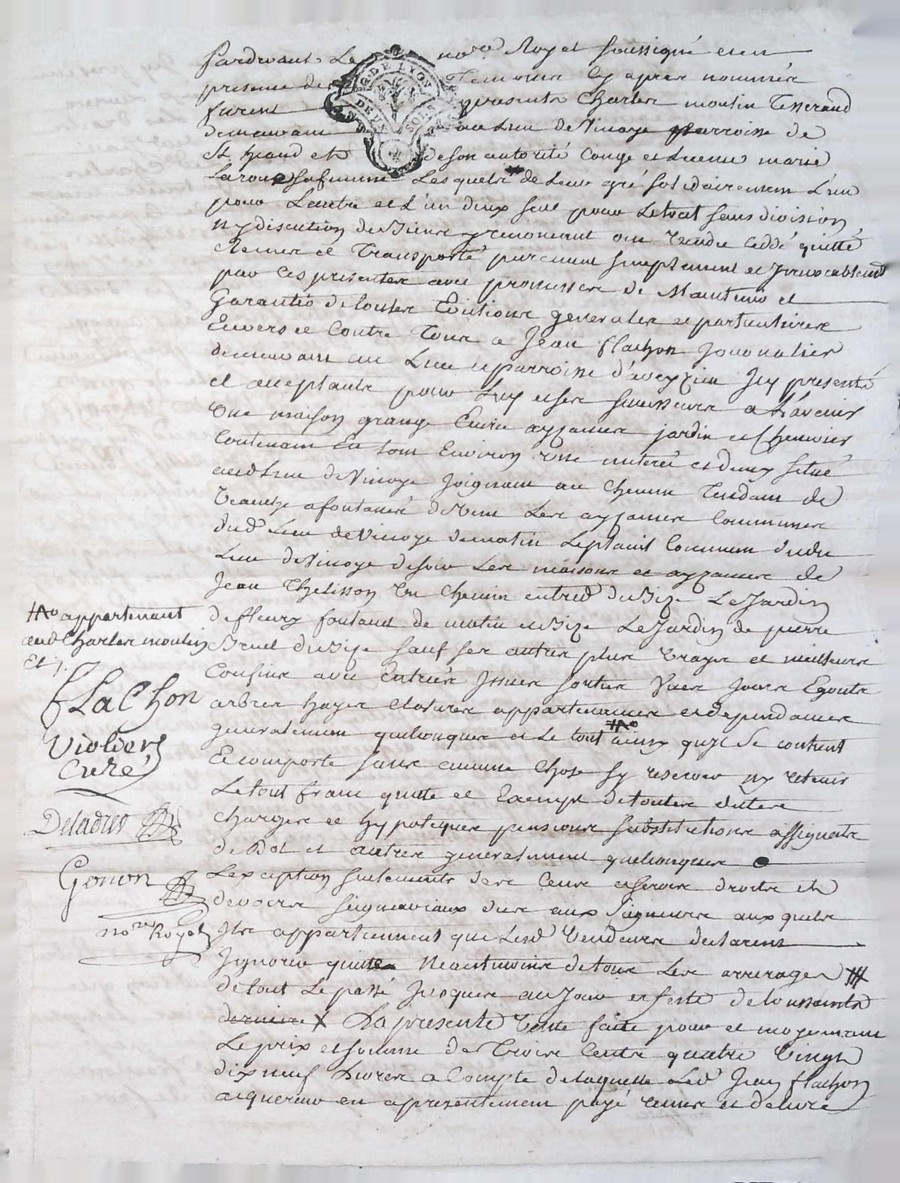 Pardevant Le no.re Royal soussigné et en
presence des Temoins Cy apres nommés
furent presents Charles moulin Tisserand
demeurant au Lieu de Vinoye parroisse de
St heand et de son autorité Conge et Licence marie
Laroue sa femme Lesquels de Leur gré solidairement L'un
pour Lautre et L'un deux seul pour Letout sans division
ny discution de Biens y renoncant ont Vendu Ceddé quitté
Remis et Transporté purement simplement et Irrevocablement
par Ces presentes avec promesses de Maintenir et
Garantie de toutes Evictions generales et particulieres
Envers et Contre Tous a Jean flachon Journalier
demeurant au Lieu et parroisse d'aveyzieu Icy present
et acceptant pour Luy et ses successeurs a L'avenir
Une maison grange Ecurie ayzances jardin et Chenevier
Contenant En tout Environ Une meterée et demy situé
aud Lieu de Vinoye Joignant au Chemin Tendant de
a fontanes de Vent Les ayzances Communes
dud.t Lieu de Vinoye de matin Le Communs dudit
Lieu de Vinoye de soir Les maisons et ayzances de
Jean Thelisson Un Chemin entredt du Bize Le Jardin
de fleury fontand de matin et Bize Le Jardin de pierre
du Bize sauf ses autres plus Vrayes et meilleurs
Confins avec Entrées Issues sorties Vues Jours Egouts
arbres hayes Clotures appartenances et dependances
generalement quelconques et Le tout ainsy qu'il Se contient
Et comporte sans aucune Chose sy reserver ny retenir
Le tout franc quitte et Exempt de toutes dettes
Charges et hypoteques pensions substitutions assignats
de Dot et autres generalement quelconques
L'exception seulements des Cens et servis droits et
devoirs seigneuriaux dus aux seigneurs auxquels
Ils appartiennent que Lesd. Vendeurs declarent
Ignorer quitte Neantmoins de tous Les arrerages
de tout Le passé Jusques au Jour et feste de toussaints
derniere X La presente Vente faite pour et moyennant
Le prix et somme de Trois Cents quatre Vingt
dix neuf Livres a Compte de laquelle Led. Jean flachon
acquereur en a presentement payé remis et delivré
appartenant
aud Charles moulin
Et /.
fLachon
Violier
Curé
Deladres
Gonon
no.re Royal
G. DE LYON
DEUX SOLS